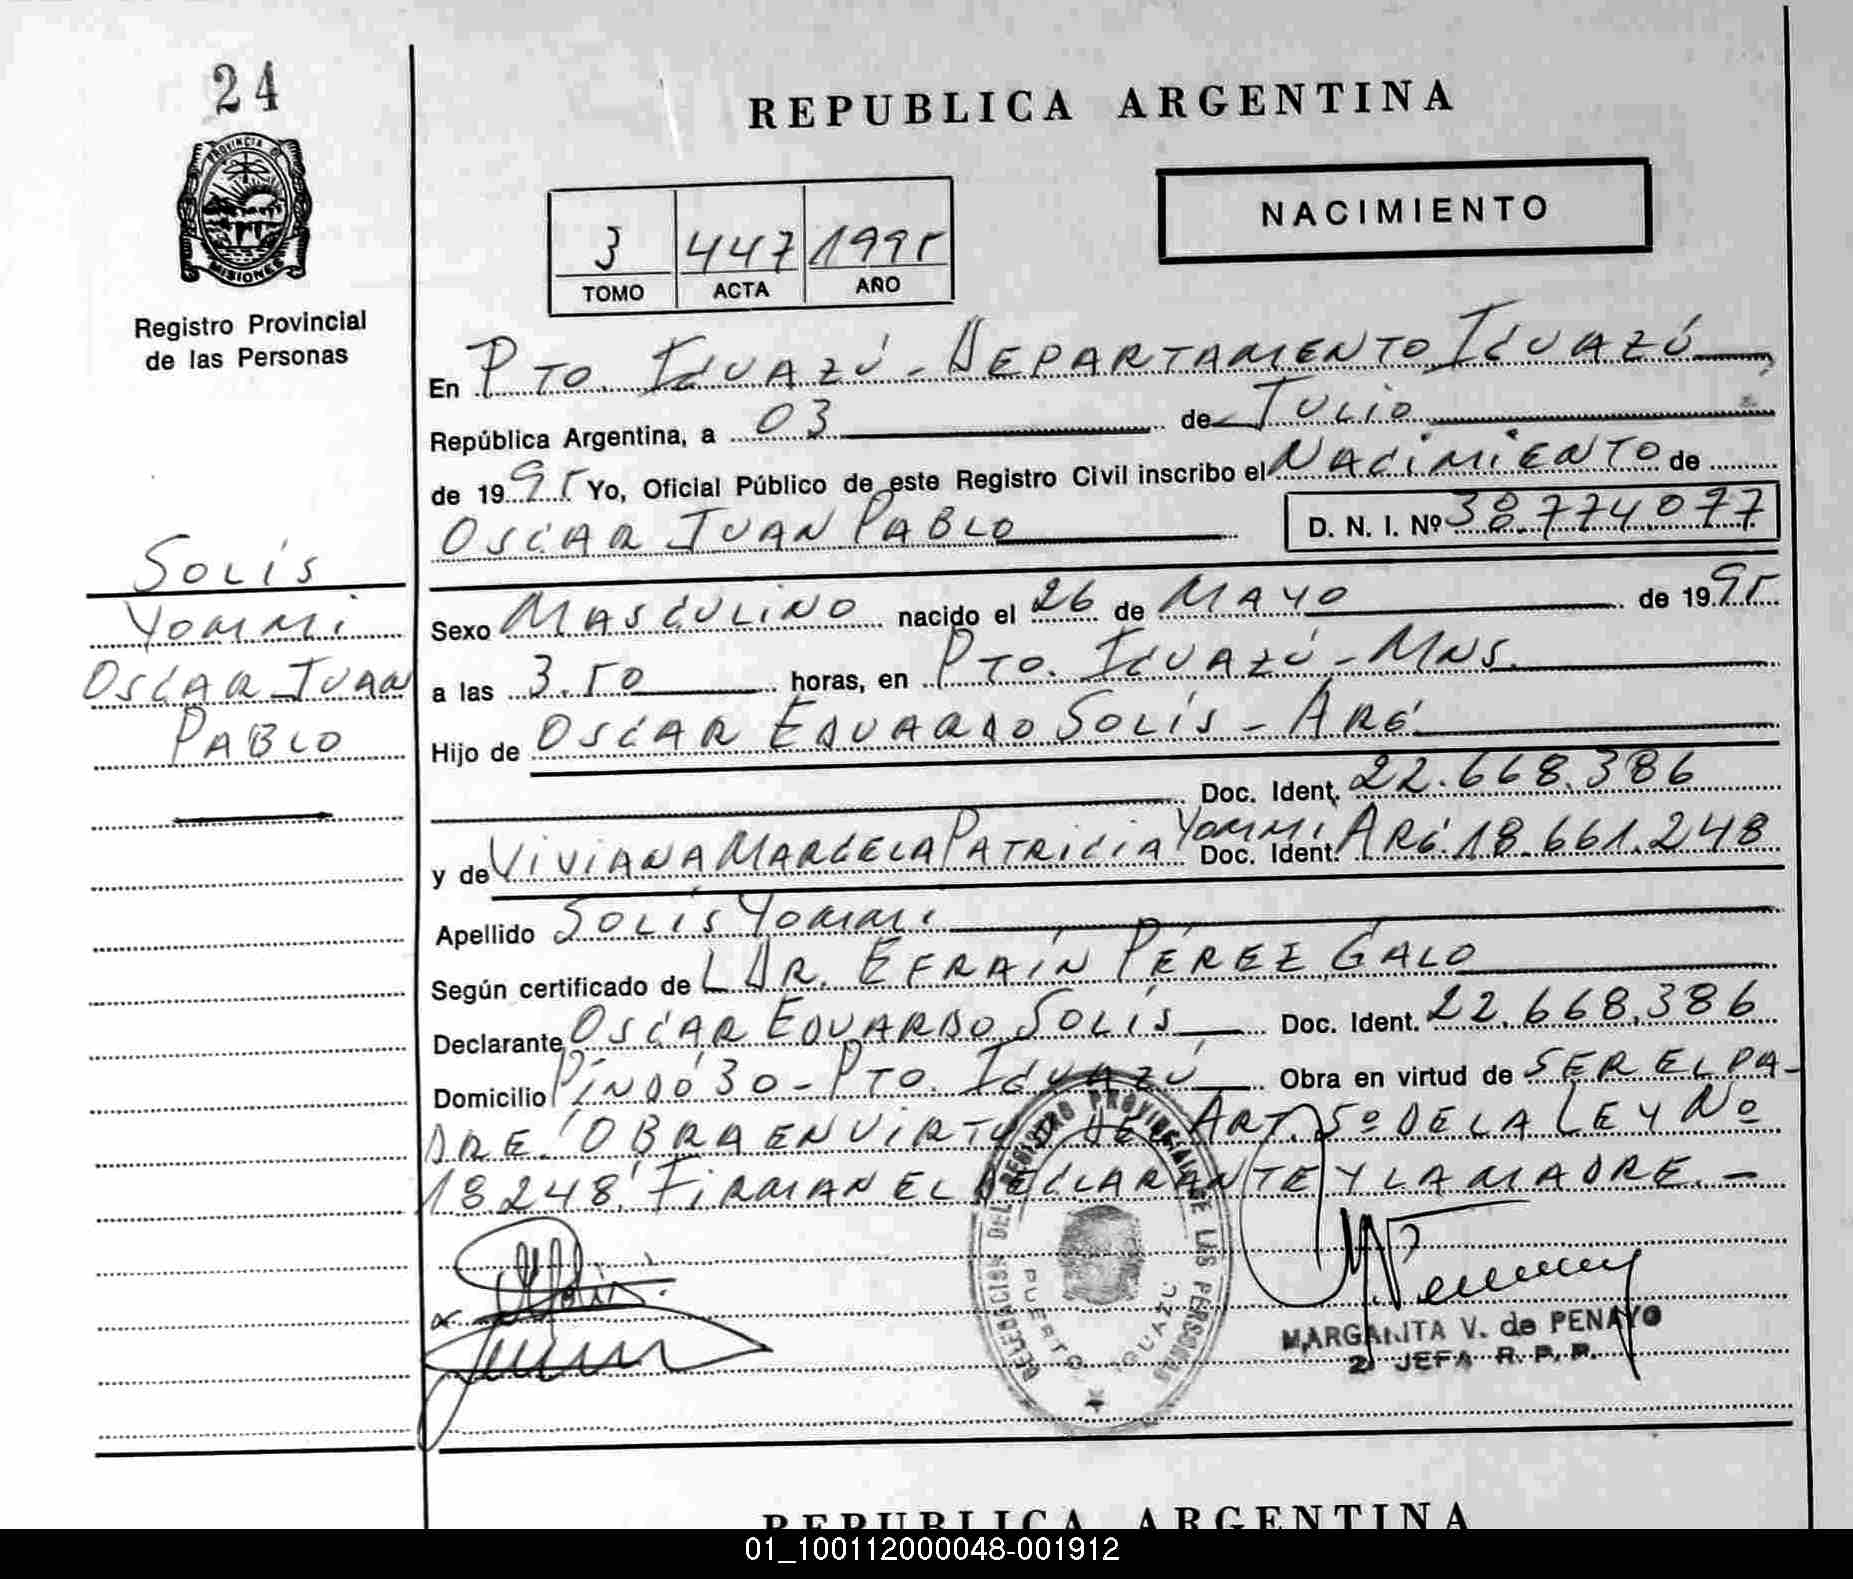 24
REPUBLICA ARGENTINA
PROVINCIA DE
MISIONES
Registro Provincial
de las Personas
NACIMIENTO
3 447 1995
TOMO ACTA AÑO
En PTO. IGUAZÚ - DEPARTAMENTO IGUAZÚ
República Argentina, a 03 de JULIO
de 1995 Yo, Oficial Público de este Registro Civil inscribo el NACIMIENTO de
OSCAR JUAN PABLO D. N. I. Nº 38.774.077
SOLIS
YOMMI
OSCAR JUAN
PABLO
Sexo MASCULINO nacido el 26 de MAYO de 1995
a las 3.50 horas, en PTO. IGUAZÚ - MNS.
Hijo de OSCAR EDUARDO SOLIS - ARG.
Doc. Ident. 22.668.386
y de VIVIANA MARCELA PATRICIA YOMMI Doc. Ident. ARG. 18.661.248
Apellido SOLIS YOMMI
Según certificado de L DR. EFRAÍN PÉREZ GALO
Declarante OSCAR EDUARDO SOLIS Doc. Ident. 22.668.386
Domicilio PINDÓ 30 - PTO. IGUAZÚ Obra en virtud de SER EL PA-
DRE. "OBRA EN VIRTUD DEL ART. 5º DE LA LEY Nº
18248" FIRMAN EL DECLARANTE Y LA MADRE. -
DELEGACION DEL REGISTRO PROVINCIAL DE LAS PERSONAS
PUERTO IGUAZU
MARGARITA V. de PENAYO
2º JEFA R. P. P.
REPUBLICA ARGENTINA
01_100112000048-001912